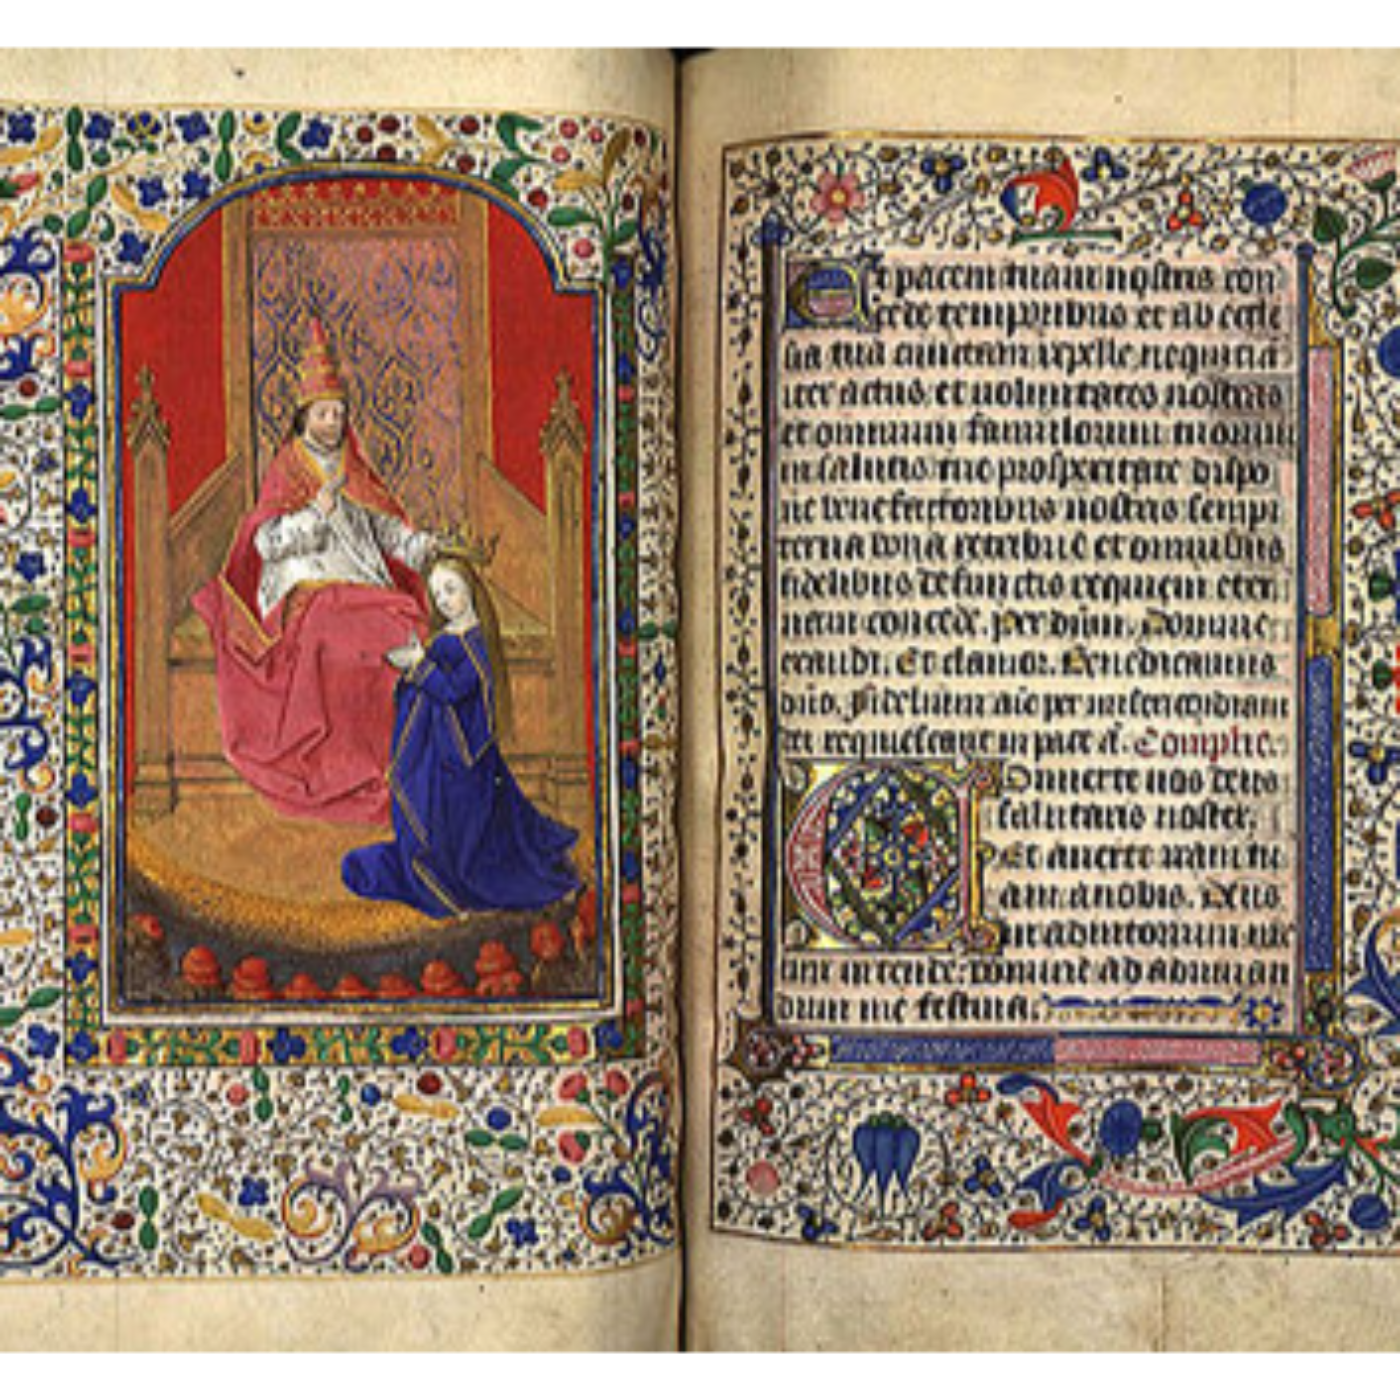 Et pacem tuam nostris con
cede temporibus et ab eccle
sia tua cunctam repelle nequiciā
iter actus et voluntates nostras
et omnium famulorum tuorum
in salutis tue prosperitate dispo
ne benefactoribus nostris sempi
terna bona retribue et omnibus
fidelibus defunctis requiem eter
nam concede. per dūm. Domine
exaudi. Et clamor. Benedicamus
dūo. fidelium aīe per misericordiam
dei requiescant in pace. Complet.
Converte nos deus
salutaris noster.
Et averte iram tu
am a nobis. Deus
in adiutorium me
um intende: domine ad adiuvan
dum me festina.